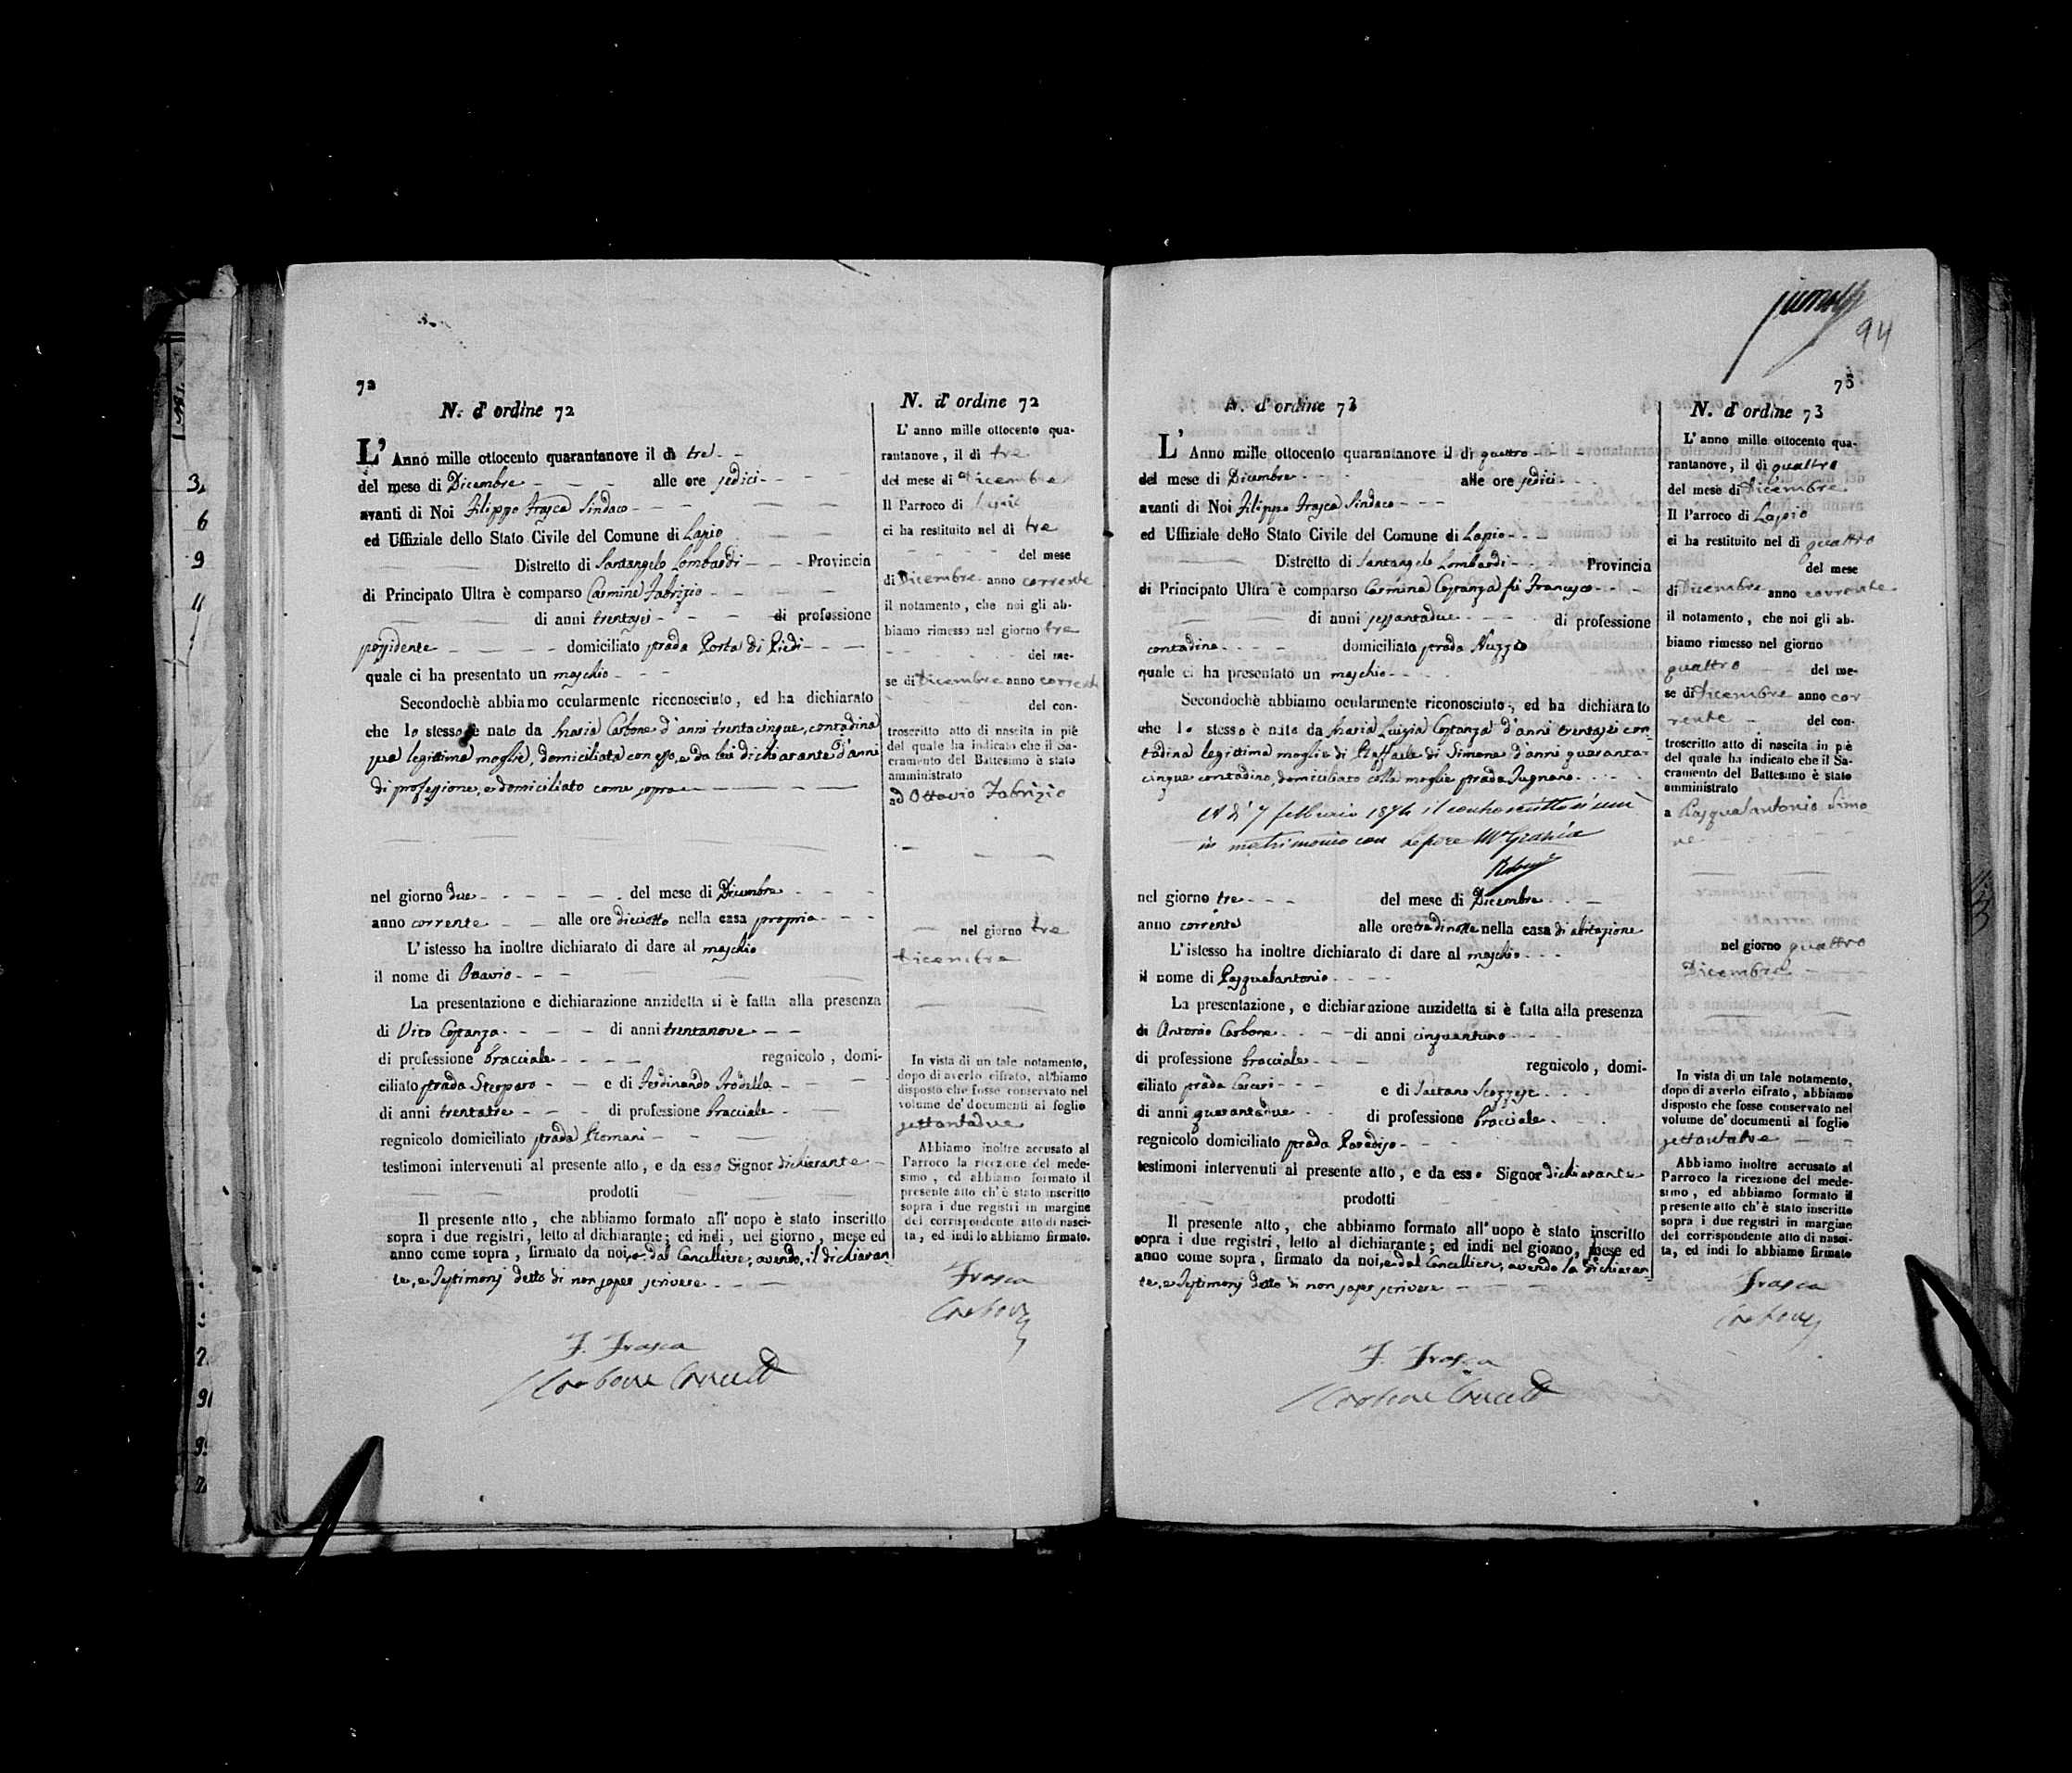 94
72
N. d' ordine 72
L' Anno mille ottocento quarantanove il di tre
del mese di Dicembre alle ore sedici
avanti di Noi Filippo Frasca Sindaco
ed Uffiziale dello Stato Civile del Comune di Lapio
Distretto di Santangelo Lombardi Provincia
di Principato Ultra è comparso Carmine Fabrizio
di anni trentasei di professione
possidente domiciliato strada Porta di Piedi
quale ci ha presentato un maschio
Secondochè abbiamo ocularmente riconosciuto, ed ha dichiarato
che lo stesso è nato da Maria Carbone d'anni trentacinque, contadina
sua legittima moglie, domiciliata con esso, e da lui dichiarante d'anni
di professione, e domiciliato come sopra
nel giorno due del mese di Dicembre
anno corrente alle ore diciotto nella casa propria
L' istesso ha inoltre dichiarato di dare al maschio
il nome di Ottavio
La presentazione e dichiarazione anzidetta si è fatta alla presenza
di Vito Costanza di anni trentanove
di professione bracciale regnicolo, domi-
ciliato strada e di Ferdinando
di anni trentatre di professione bracciale
regnicolo domiciliato strada Romani
testimoni intervenuti al presente atto, e da esso Signor dichiarante
prodotti
Il presente atto, che abbiamo formato all' uopo è stato inscritto
sopra i due registri, letto al dichiarante; ed indi, nel giorno, mese ed
anno come sopra, firmato da noi, e dal Cancelliere; avendo, il dichiaran
te, e Testimonj detto di non saper scrivere
F. Frasca
Carbone
N. d' ordine 72
L' anno mille ottocento qua-
rantanove, il di tre
del mese di Dicembre
Il Parroco di Lapio
ci ha restituito nel di tre
del mese
di Dicembre anno corrente
il notamento, che noi gli ab-
biamo rimesso nel giorno tre
del me-
se di Dicembre anno corrente
del con-
troscritto atto di nascita in piè
del quale ha indicato che il Sa-
cramento del Battesimo è stato
amministrato
ad Ottavio Fabrizio
nel giorno tre
Dicembre
In vista di un tale notamento,
dopo di averlo cifrato, abbiamo
disposto che fosse conservato nel
volume de' documenti al foglio
settantadue
Abbiamo inoltre accusato al
Parroco la ricezione del mede-
simo, ed abbiamo formato il
presente atto ch' è stato inscritto
sopra i due registri in margine
del corrispondente atto di nasci-
ta, ed indi lo abbiamo firmato.
Frasca
Carbone
73
N. d' ordine 73
L' Anno mille ottocento quarantanove il di quattro
del mese di Dicembre alle ore sedici
avanti di Noi Filippo Frasca Sindaco
ed Uffiziale dello Stato Civile del Comune di Lapio
Distretto di Santangelo Lombardi Provincia
di Principato Ultra è comparso Carmina Costanza fu Francesco
di anni sessantadue di professione
contadina domiciliato strada Nuzzo
quale ci ha presentato un maschio
Secondochè abbiamo ocularmente riconosciuto, ed ha dichiarato
che lo stesso è nato da Maria Luigia Costanza d'anni trentasei con
tadina legittima moglie di Raffaele di Simone d'anni quaranta-
cinque contadino, domiciliato colla moglie strada
A dì 7 febbraio 1874 il controscritto si unì
in matrimonio con Lepore Mª Grazia
nel giorno tre del mese di Dicembre
anno corrente alle ore tre di notte nella casa di abitazione
L' istesso ha inoltre dichiarato di dare al maschio
il nome di Pasqualantonio
La presentazione, e dichiarazione anzidetta si è fatta alla presenza
di Antonio Carbone di anni cinquantuno
di professione bracciale regnicolo, domi-
ciliato strada e di Gaetano Scozzese
di anni quarantadue di professione bracciale
regnicolo domiciliato strada Paradiso
testimoni intervenuti al presente atto, e da esso Signor dichiarante
prodotti
Il presente atto, che abbiamo formato all' uopo è stato inscritto
sopra i due registri, letto al dichiarante; ed indi nel giorno, mese ed
anno come sopra, firmato da noi, e dal Cancelliere, avendo la dichiaran
te, e Testimonj detto di non saper scrivere
F. Frasca
Carbone
N. d' ordine 73
L' anno mille ottocento qua-
rantanove, il di quattro
del mese di Dicembre
Il Parroco di Lapio
ci ha restituito nel di quattro
del mese
di Dicembre anno corrente
il notamento, che noi gli ab-
biamo rimesso nel giorno
quattro del me-
se di Dicembre anno cor
rente del con-
troscritto atto di nascita in piè
del quale ha indicato che il Sa-
cramento del Battesimo è stato
amministrato
a Pasqualantonio Simo
ne
nel giorno quattro
Dicembre
In vista di un tale notamento,
dopo di averlo cifrato, abbiamo
disposto che fosse conservato nel
volume de' documenti al foglio
Abbiamo inoltre accusato al
Parroco la ricezione del mede-
simo, ed abbiamo formato il
presente atto ch' è stato inscritto
sopra i due registri in margine
del corrispondente atto di nasci-
ta, ed indi lo abbiamo firmato
Frasca
Carbone